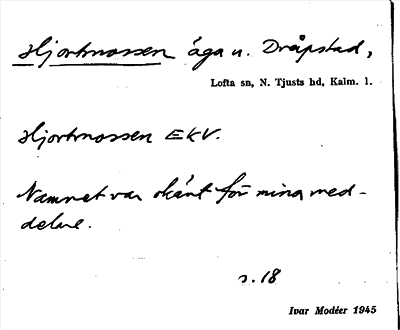 Hjortmossen äga u. Dråpstad,
Lofta sn, N. Tjusts hd, Kalm. l.
Hjortmossen EKV.
Namnet var okänt för mina med-
delare.
s. 18
Ivar Modéer 1945